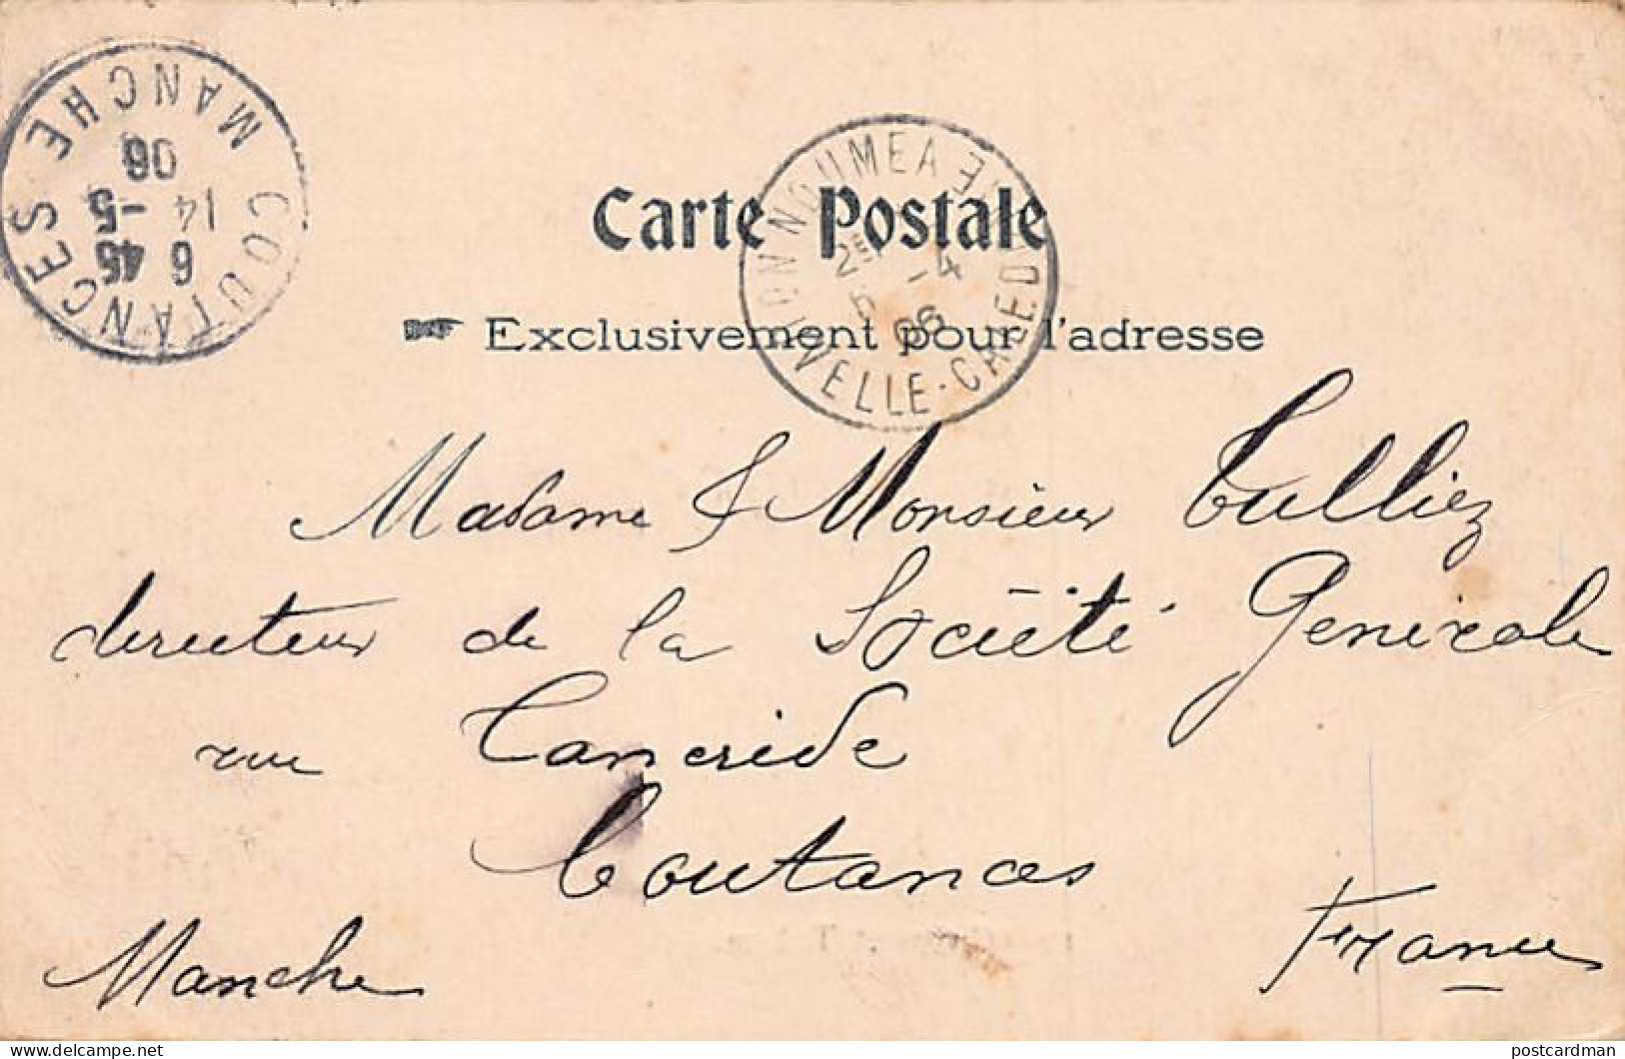 COUTANCES
MANCHE
6 45
14 -5
06
NOUMEA
Nlle CALEDONIE
Carte Postale
Exclusivement pour l'adresse
Madame & Monsieur Tulliez
directeur de la Société Générale
rue Tancrède
Coutances
Manche
France
www.delcampe.net
postcardman